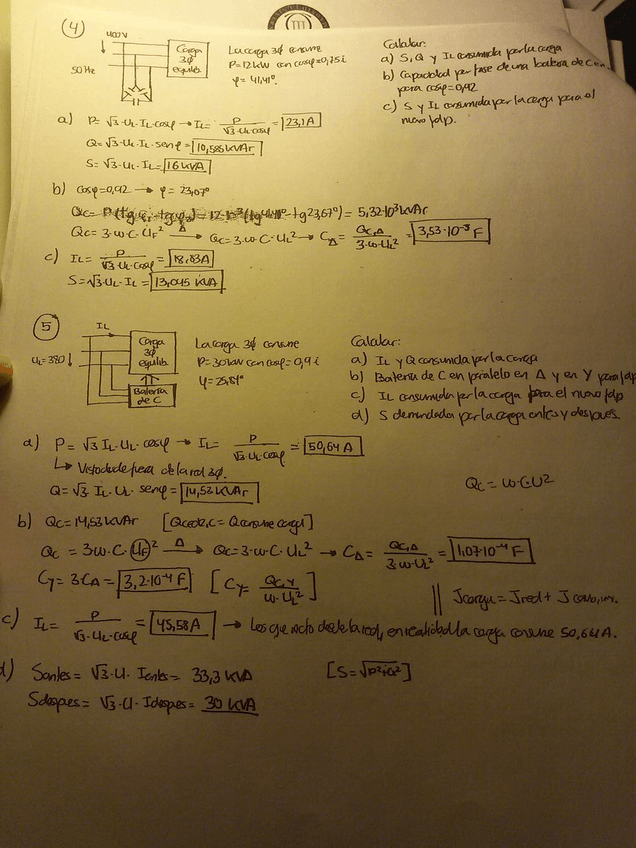 4
400V
50 Hz
Carga
3φ
equilib.
La carga 3φ consume
P=12kW con cosφ=0,75 i
φ=41,41º.
Calcular:
a) S, Q y IL consumida por la carga
b) Capacidad por fase de una batería de C en
para cosφ=0,92
c) S y IL consumida por la carga para el
nuevo fdp.
a) P= √3·UL·IL·cosφ → IL= P / √3·UL·cosφ = 23,1A
Q=√3·UL·IL·senφ = 10,585 kVAr
S=√3·UL·IL= 16 kVA
b) cosφ=0,92 → φ= 23,07º
Qc= = 5,32·10³ kVAr
Qc= 3·ω·C·UF² Δ→ Qc=3·ω·C·UL² → CΔ= Qc,Δ / 3·ω·UL² = 3,53·10⁻⁵ F
c) IL= P / √3·UL·cosφ = 18,83A
S=√3·UL·IL= 13,045 kVA
5
IL
UL=380
Carga
3φ
equilib
Batería
de C
La carga 3φ consume
P=30kW con cosφ=0,9 i
φ=25,84º
Calcular:
a) IL y Q consumida por la carga
b) Batería de C en paralelo en Δ y en Y para fdp
c) IL consumida por la carga para el nuevo fdp
d) S demandada por la carga antes y después.
a) P= √3 IL·UL·cosφ → IL= P / √3·UL·cosφ = 50,64 A
↳ Visto desde fuera de la red 3φ.
Q=√3·IL·UL·senφ= 14,53 kVAr
Qc= ω·C·U²
b) Qc=14,53 kVAr [Qcede,c = Qconsume carga]
Qc = 3·ω·C·UF² Δ→ Qc=3·ω·C·UL² → CΔ= Qc,Δ / 3·ω·UL² = 1,07·10⁻⁴ F
CY= 3CΔ= 3,2·10⁻⁴ F [CY= Qc,Y / ω·UL²]
Icarga = Ired +
c) IL= P / √3·UL·cosφ = 45,58 A → Los que visto desde la red, en realidad la carga consume 50,64A.
d) Santes= √3·U·Iantes= 33,3 kVA [S=√P²+Q²]
Sdespues= √3·U·Idespues= 30 kVA